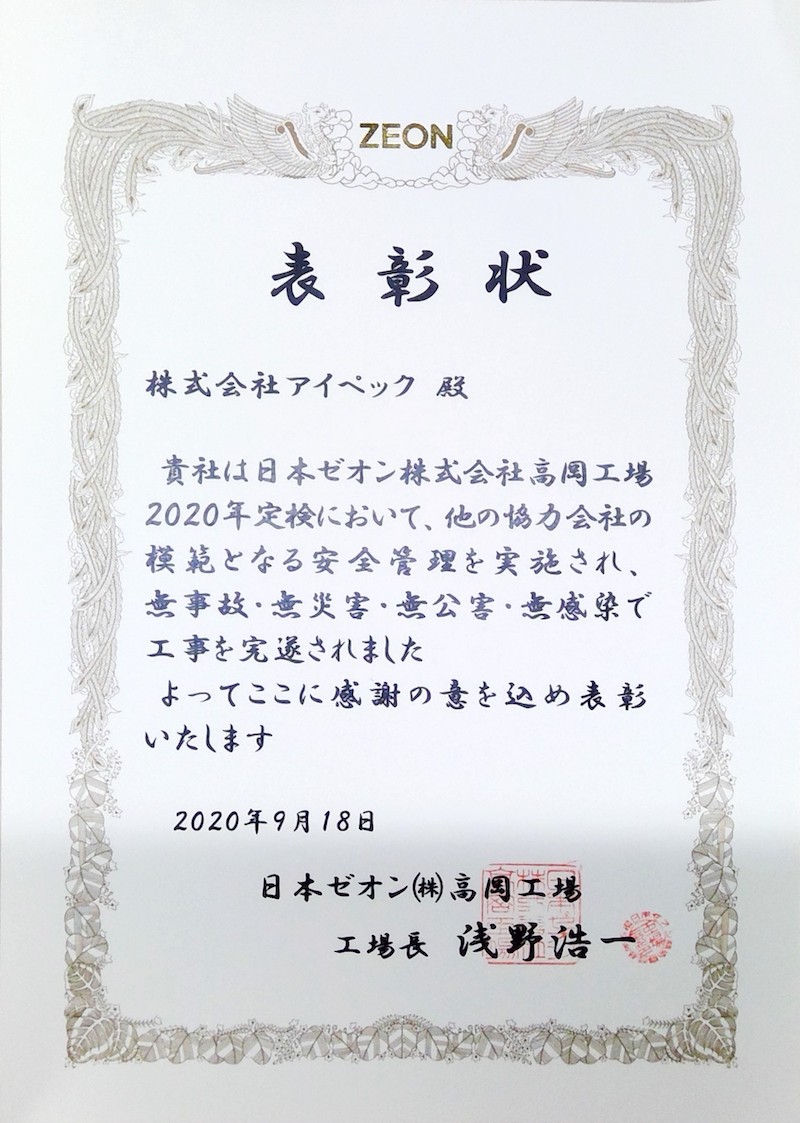 ZEON
表彰状
株式会社アイペック 殿
貴社は日本ゼオン株式会社高岡工場
2020年定検において、他の協力会社の
模範となる安全管理を実施され、
無事故・無災害・無公害・無感染で
工事を完遂されました
よってここに感謝の意を込め表彰
いたします
2020年9月18日
日本ゼオン㈱高岡工場
工場長 浅野浩一